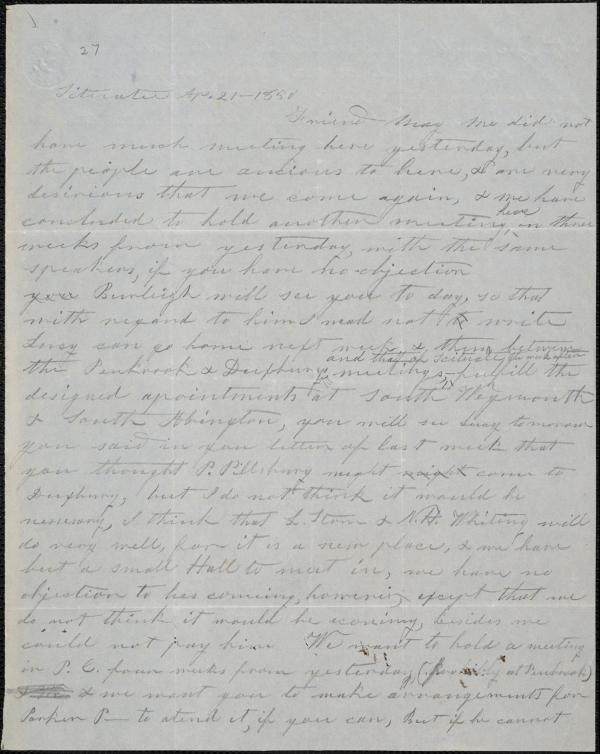 27
Scituate Ap. 21 - 1851
Friend May We did not
have much meeting here yesterday, but
the people are ancious to here, & are very
desirious that we come again, & we have
concluded to hold another meeting here, in three
weeks from yesterday, with the same
speakers, if you have no objection
you Burleigh will see you to day, so that
with regard to him I nead not write
Lucy can go home next week & then between
the Penbrook & Duxbury meetings fulfill the
and that of Scituate the week after
designed apointments at South Weymouth
& South Abington, you will see Lucy tomorrow
you said in you letter of last week that
you thought P. Pillsbury might come to
Duxbury, but I do not think it would be
nessesary, I think that L. Stone & N. H. Whiting will
do very well, for it is a new place, & we have
but a small Hall to meet in, we have no
objection to his comeing, however, except that we
do not think it would be econimy, besides we
could not pay him We want to hold a meeting
in P. C. four weeks from yesterday, (possibly at Penbrook)
& we want you to make arrangements for
Parker P— to atend it, if you can, But if he cannot